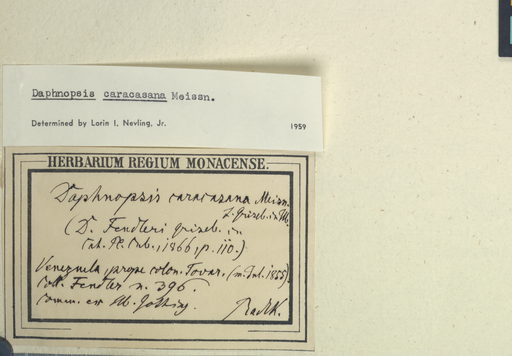 Daphnopsis caracasana Meissn.
Determined by Lorin I. Nevling, Jr. 1959
HERBARIUM REGIUM MONACENSE.
Daphnopsis caracasana Meissn.
Griseb. in
(D. Fendleri Griseb. in
Cat. Pl. Cub., 1866, p. 110.)
Venezuela, prope colon. Tovar. (m. Jul. 1855).
Coll. Fendler n. 396.
Comm. ex Hb.
Radlk.